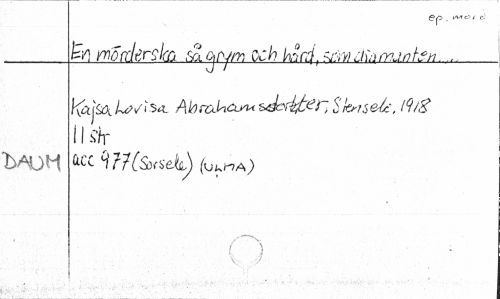 ep. mord
En mörderska så grym och hård, som diamanten....
Kajsa Lovisa Abrahamsdotter, Stensele, 1918
11 str
DAUM acc 977 (Sorsele) (ULMA)